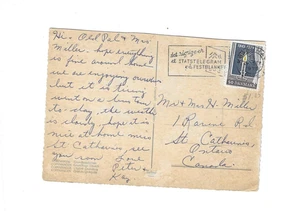 Hi, Old Pal & Mrs
Miller. hope everything
is fine around home
we are enjoying ourselves
but it is tiring
went on a bus tour
to-day the weather
is cloudy, hope it is
nice at home. miss
St Catharines, see
you soon Love
Peter &
Kay
STATSTELEGRAM
FESTBLANKET
Mr & Mrs H. Miller
St. Catharines
Ontario
Canada.